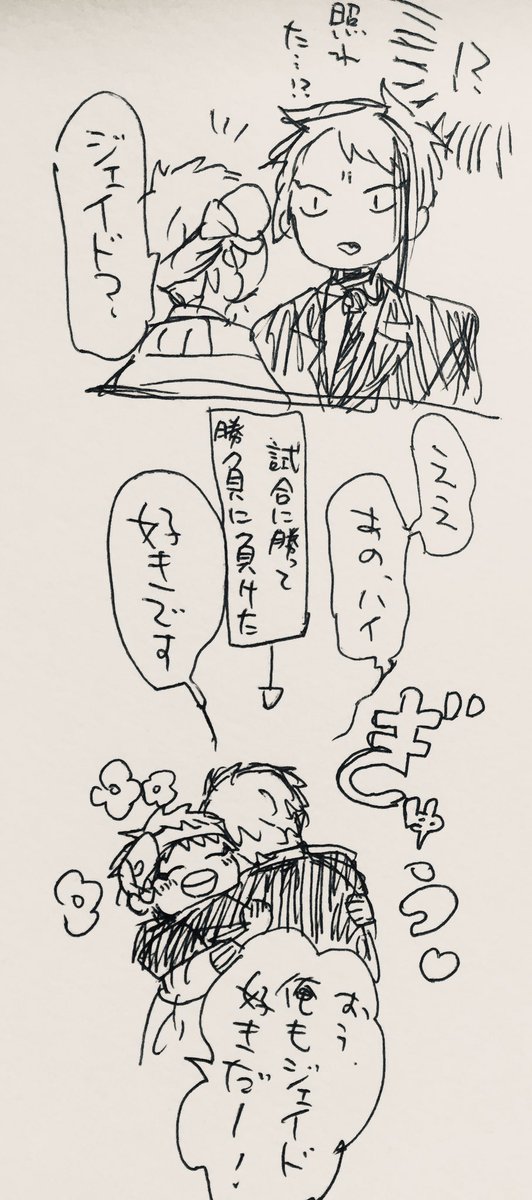 !?
照れ
た…!?
ジェイド?
ええ
あの、ハイ
試合に勝って
勝負に負けた
好きです
ぎゅうっ♡
おう
俺もジェイド
好きだー!